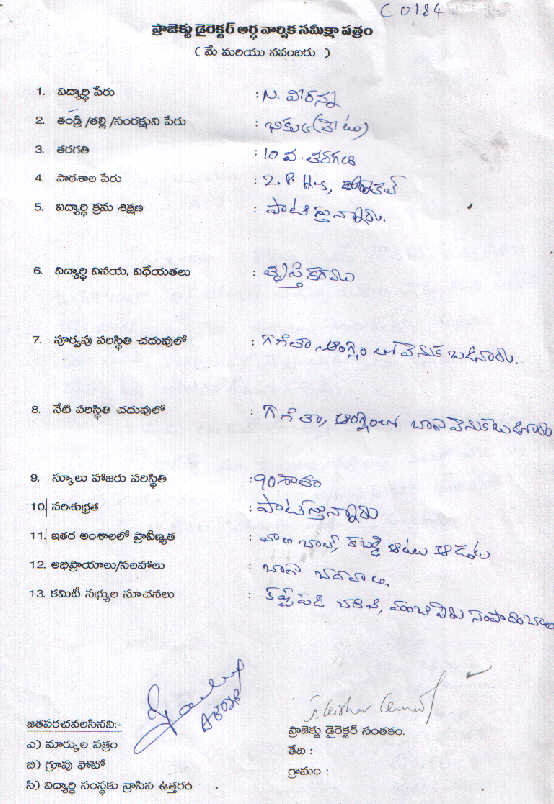 C 0184
ప్రాజెక్టు డైరెక్టర్ అర్ధ వార్షిక సమీక్షా పత్రం
( మే మరియు నవంబరు )
1. విద్యార్థి పేరు : N. వీరన్న
2. తండ్రి /తల్లి /సంరక్షుని పేరు
3. తరగతి : 10 వ తరగతి
4. పాఠశాల పేరు
5. విద్యార్థి క్రమ శిక్షణ : పాటిస్తున్నాడు.
6. విద్యార్థి వినయ, విధేయతలు : తృప్తికరము
7. పూర్వపు పరిస్థితి చదువులో : గణితం, ఆంగ్లం లో వెనుక బడినాడు.
8. నేటి పరిస్థితి చదువులో : గణితం, ఆంగ్లంలో బాగా వెనుకబడినాడు
9. స్కూలు హాజరు పరిస్థితి : 90 శాతం
10. పరిశుభ్రత : పాటిస్తున్నాడు
11. ఇతర అంశాలలో ప్రావీణ్యత : వాలీ బాల్, కబడ్డీ ఆటలు ఆడతాడు
12. అభిప్రాయాలు/సలహాలు : బాగా చదవాలి.
13. కమిటీ సభ్యుల సూచనలు : కష్టపడి చదివి, మంచి పేరు సంపాదించాలి
జతపరచవలసినవి:-
ఎ) మార్కుల పత్రం
బి) గ్రూపు ఫోటో
సి) విద్యార్థి సంస్థకు వ్రాసిన ఉత్తరం
ప్రాజెక్టు డైరెక్టర్ సంతకం.
తేది :
గ్రామం :